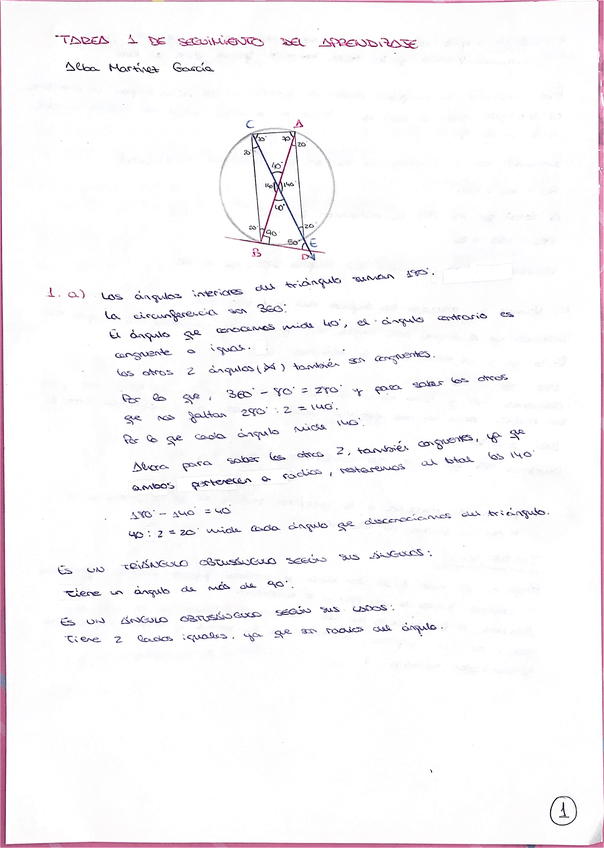 TAREA 1 DE SEGUIMIENTO DEL APRENDIZAJE
Alba Martínez García
C A
70° 70°
20 20
40°
140 140°
40°
20° 90 20°
80° E
B D
1. a) Los ángulos interiores del triángulo suman 180°.
La circunferencia son 360°.
El ángulo que conocemos mide 40°, el ángulo contrario es
congruente o igual.
Los otros 2 ángulos también son congruentes.
Por lo que, 360° - 80° = 280° y para saber los otros
que nos faltan 280° : 2 = 140°.
Por lo que cada ángulo mide 140°.
Ahora para saber los otros 2, también congruentes, ya que
ambos pertenecen a radios, restaremos al total los 140°
180° - 140° = 40°
40 : 2 = 20° mide cada ángulo que desconocíamos del triángulo.
ES UN TRIÁNGULO OBTUSÁNGULO SEGÚN SUS ÁNGULOS:
Tiene un ángulo de más de 90°.
ES UN ÁNGULO OBTUSÁNGULO SEGÚN SUS LADOS:
Tiene 2 lados iguales, ya que son radios del ángulo.
1